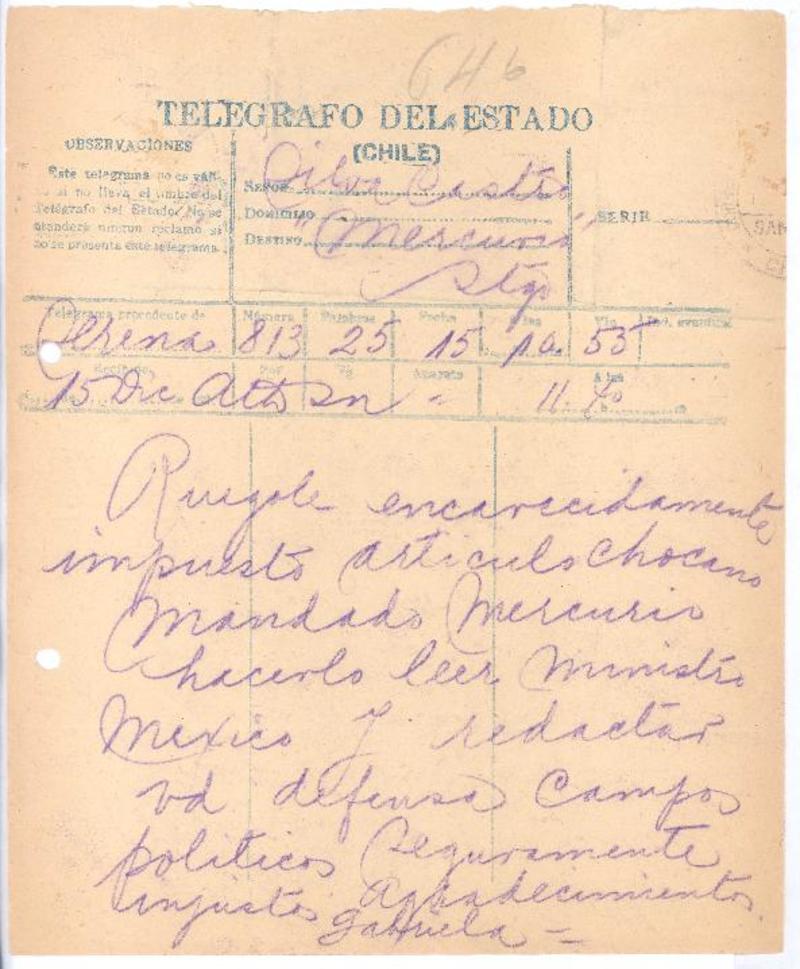 646
TELEGRAFO DEL ESTADO
(CHILE)
OBSERVACIONES
Este telegrama no es váli-
do si no lleva el timbre del
Telégrafo del Estado. No se
atenderá ningun reclamo si
no se presenta este telegrama.
SEÑOR Silva Castro
DOMICILIO
DESTINO "Mercurio"
Stgo
SERIE
Telegrama procedente de Número Palabras Fecha A las Via Ind. eventual
Serena 813 25 15 55
Recibido Por Aparato A las
15 Dic
Ruegole encarecidamente
impuesto articulo Chocano
Mandado Mercurio
hacerlo leer Ministro
Mexico y redactar
vd defensa Campos
politicos Seguramente
injustos Agradecimientos.
Gabriela =